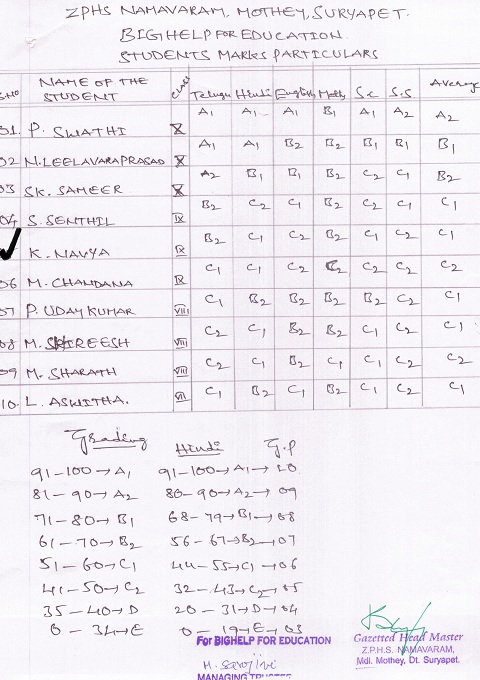 ZPHS NAMAVARAM, MOTHEY, SURYAPET.
BIGHELP FOR EDUCATION
STUDENTS MARKS PARTICULARS
S.No NAME OF THE STUDENT Class Telugu Hindi English Maths Sc S.S Average
01. P. SWATHI X A1 A1 A1 B1 A1 A2 A2
02 N. LEELAVARAPRASAD X A1 A1 B2 B2 B1 B1 B1
03 SK. SAMEER X A2 B1 B1 B2 C2 C1 B2
04 S. SENTHIL IX B2 C2 C1 B2 C2 C1 C1
K. NAVYA IX B2 C1 C2 B2 C1 C2 C1
06 M. CHANDANA IX C1 C1 C2 C2 C2 C2 C2
07 P. UDAY KUMAR VIII C1 B2 B2 B2 B2 C2 C1
08 M. SHIREESH VIII C2 C1 B2 B2 C1 C2 C1
09 M. SHARATH VIII C2 C1 B2 C1 C1 C2 C2
10. L. ASWITHA. VII C1 B2 C1 B2 C1 C2 C1
Grading Hindi G.P
91-100→A1 91-100→A1→10
81-90→A2 80-90→A2→09
71-80→B1 68-79→B1→08
61-70→B2 56-67→B2→07
51-60→C1 44-55→C1→06
41-50→C2 32-43→C2→05
35-40→D 20-31→D→04
0-34→E 0-19→E→03
For BIGHELP FOR EDUCATION
M. Sarojini
MANAGING TRUSTEE
Gazetted Head Master
Z.P.H.S. NAMAVARAM,
Mdl. Mothey, Dt. Suryapet.